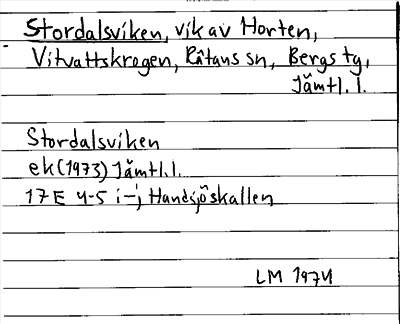 Stordalsviken, vik av Horten,
Vitvattskrogen, Råtans sn, Bergs tg,
Jämtl. l.
Stordalsviken
ek (1973) Jämtl. l.
17E 4-5 i-j Handsjöskallen
LM 1974